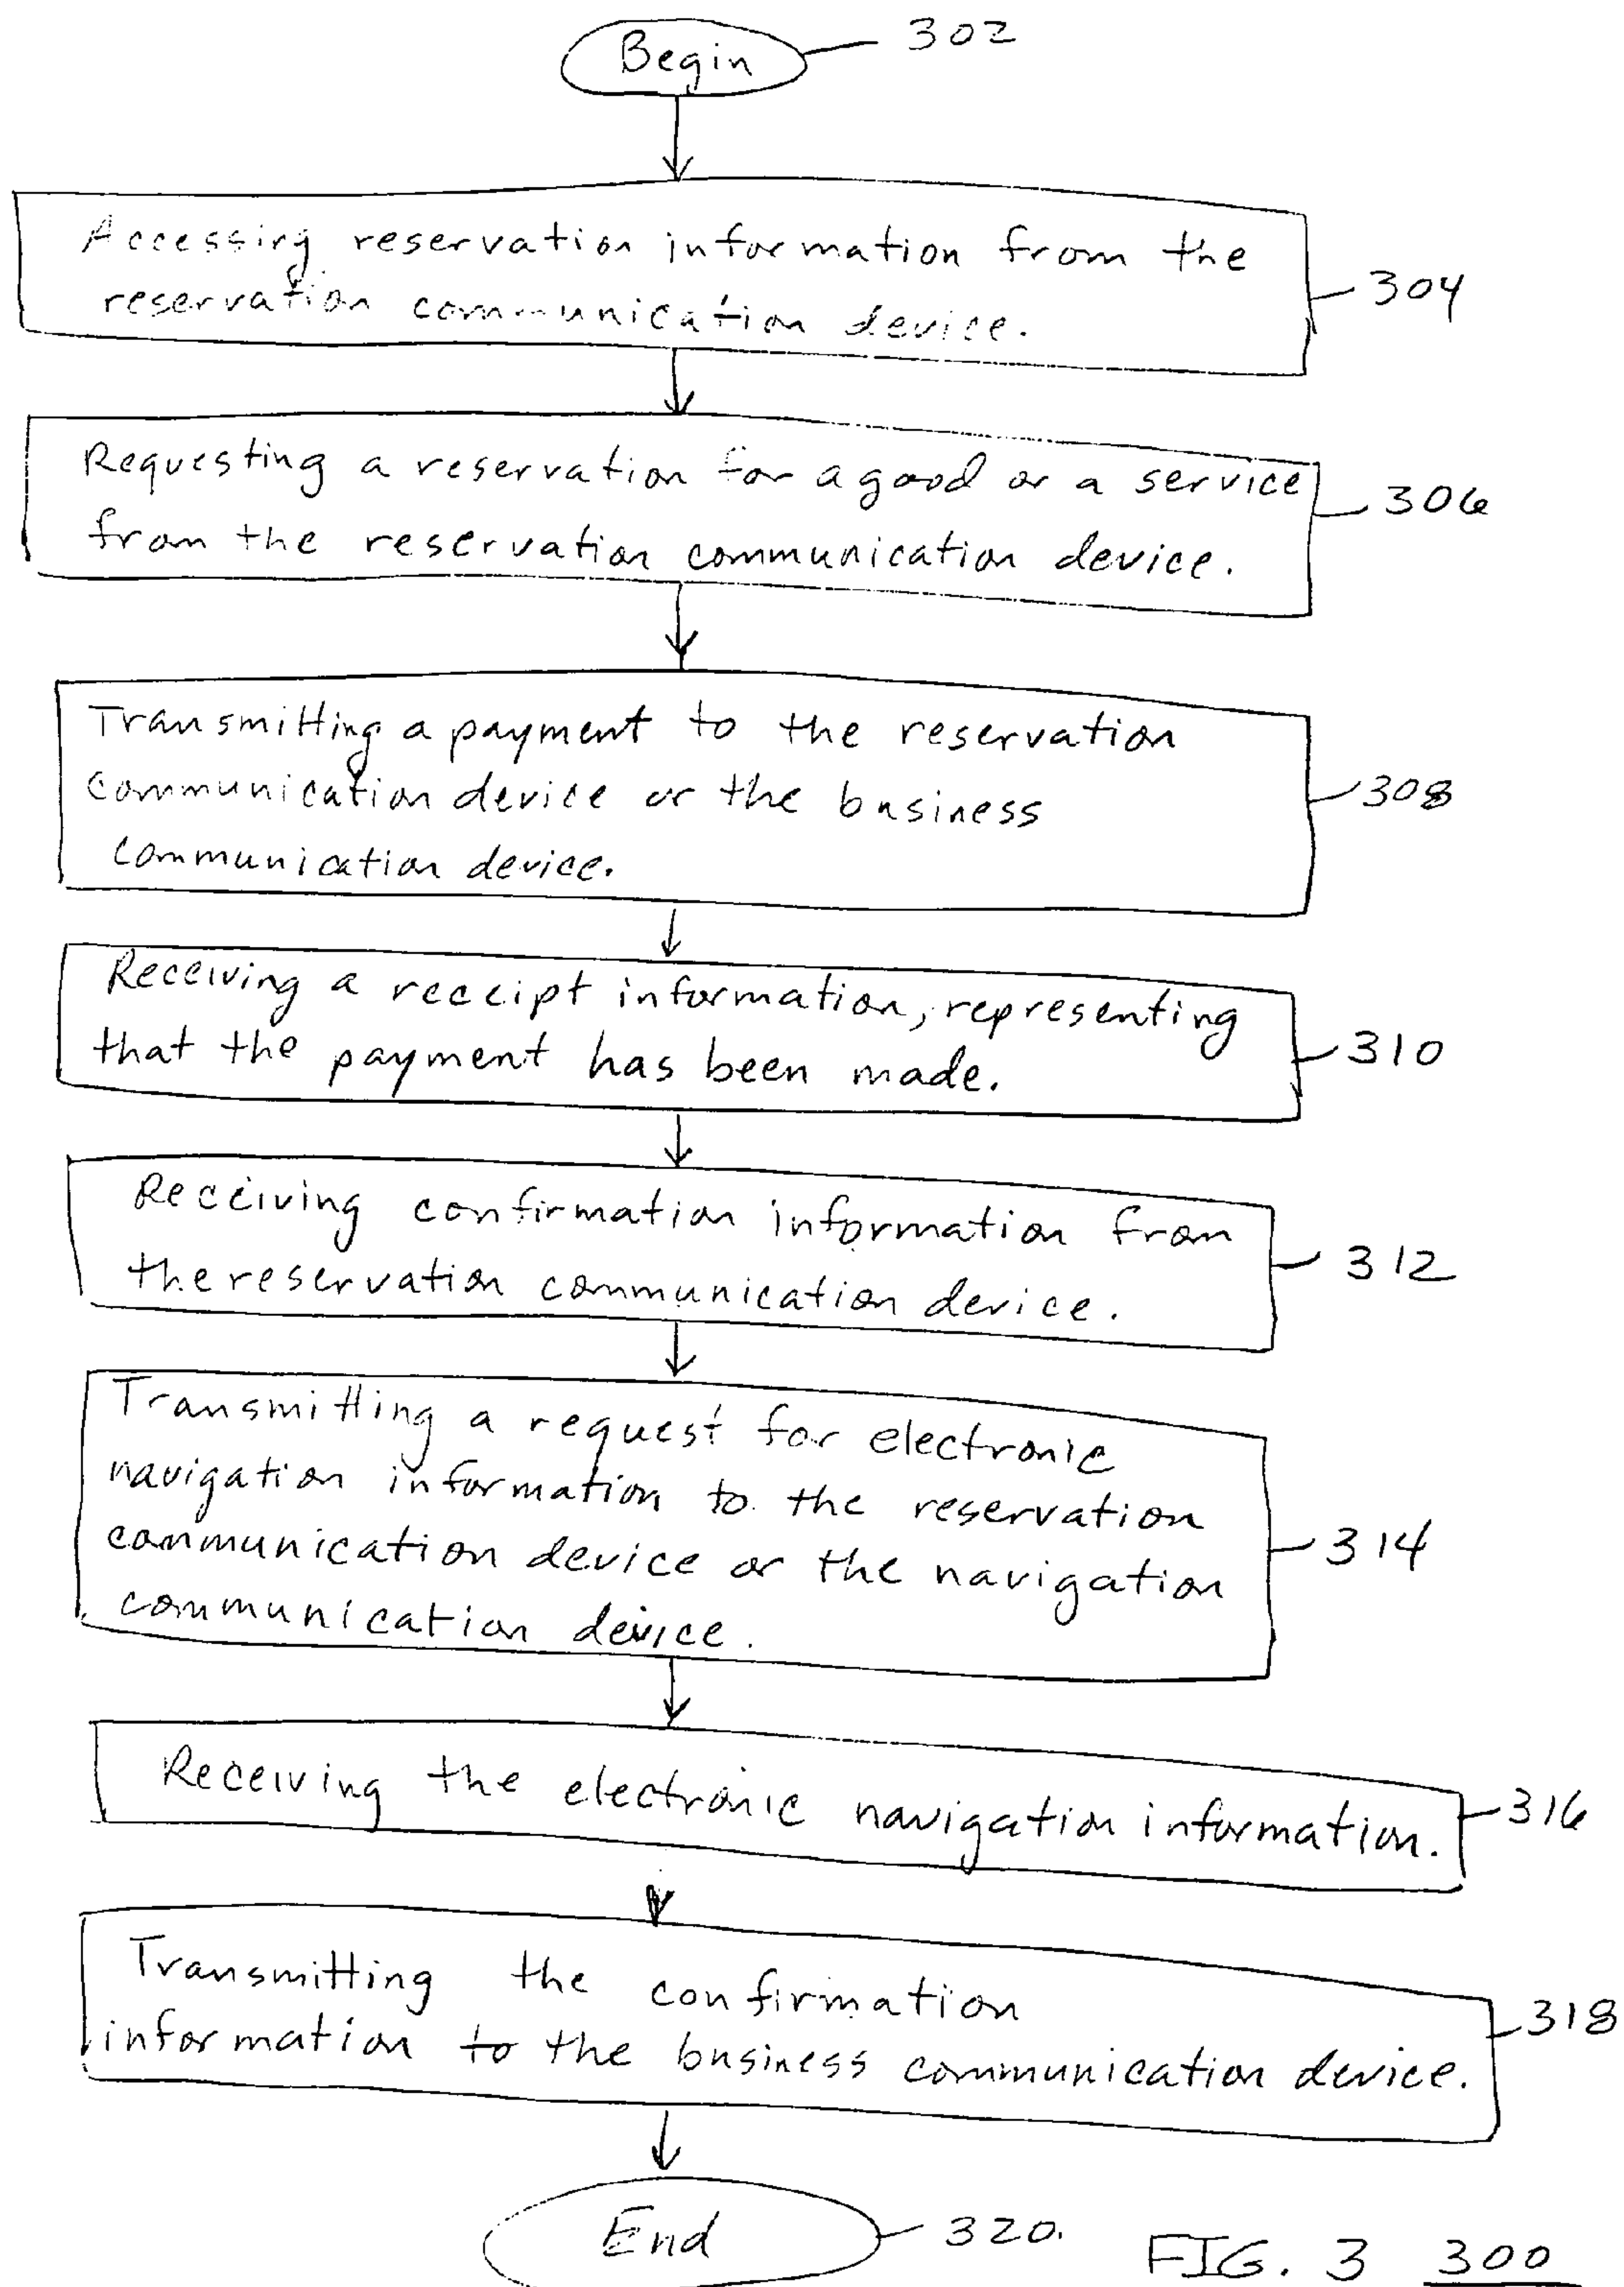 Begin 302
Accessing reservation information from the
reservation communication device. 304
Requesting a reservation for a good or a service
from the reservation communication device. 306
Transmitting a payment to the reservation
communication device or the business 308
communication device.
Receiving a receipt information, representing
that the payment has been made. 310
Receiving confirmation information from
the reservation communication device. 312
Transmitting a request for electronic
navigation information to the reservation
communication device or the navigation 314
communication device.
Receiving the electronic navigation information. 316
Transmitting the confirmation
information to the business communication device. 318
End 320.
FIG. 3 300